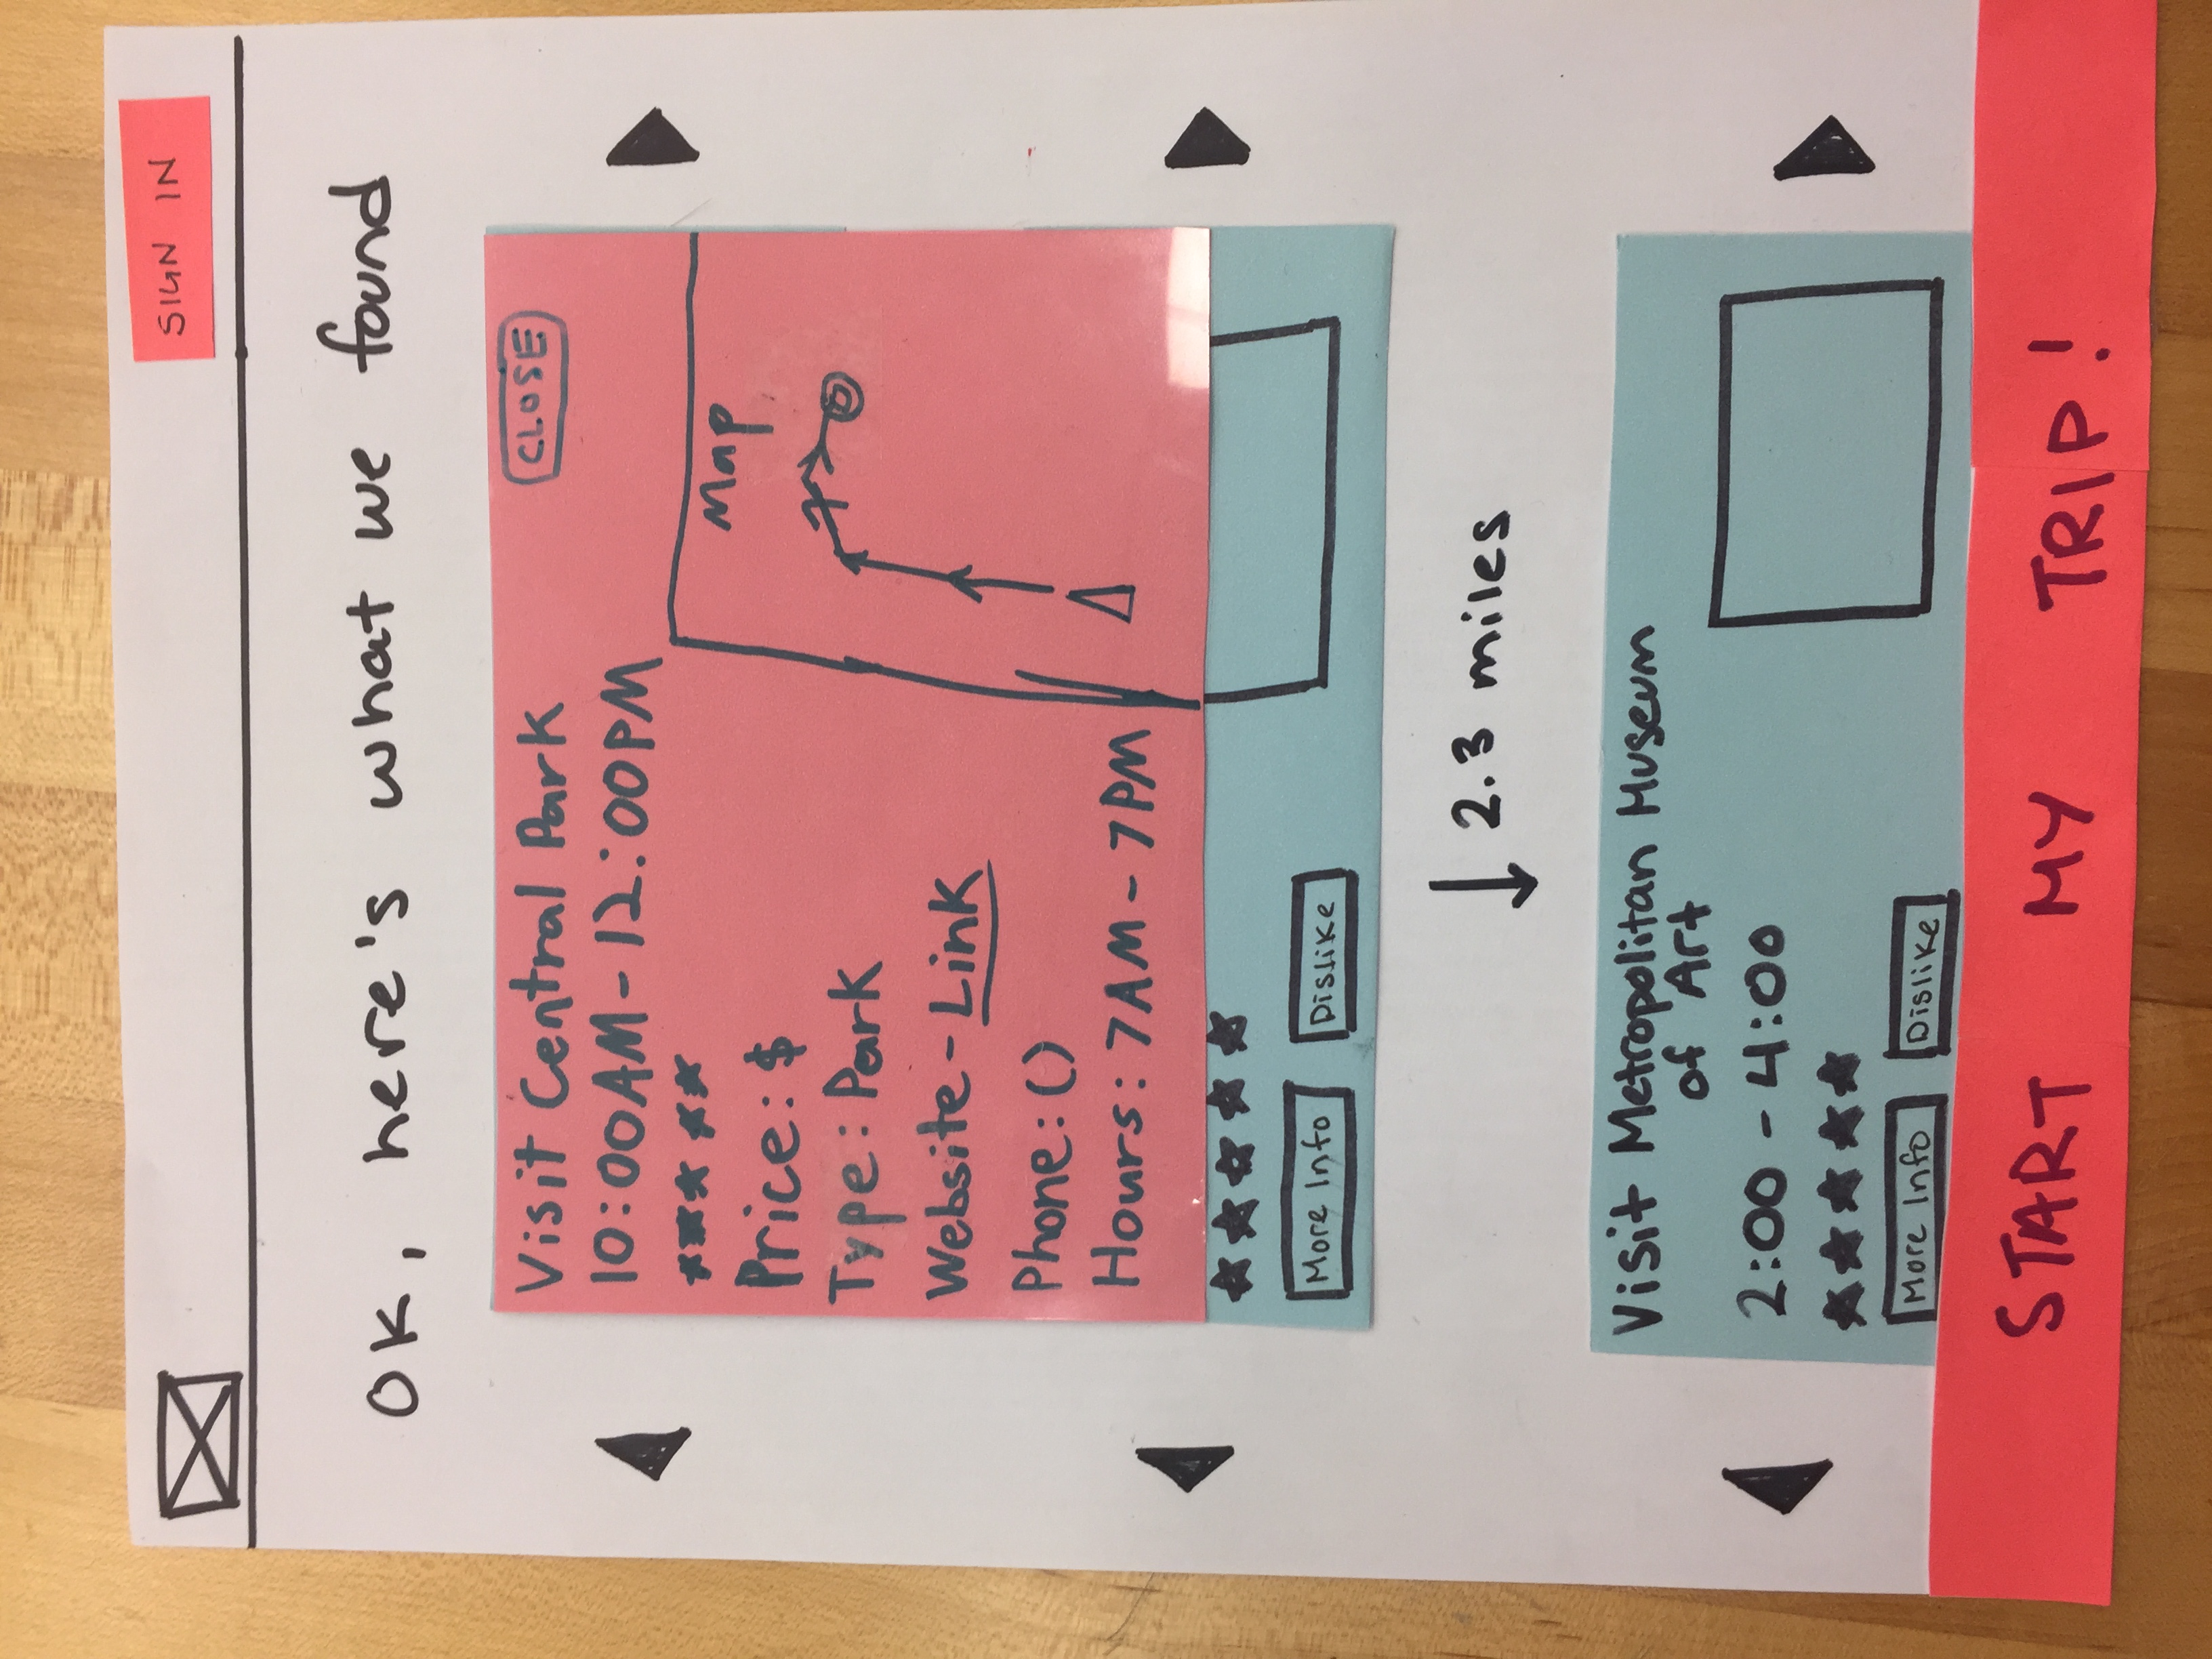 SIGN IN
OK, here's what we found
Visit Central Park
CLOSE
10:00AM - 12:00PM
Price: $
Map
Type: Park
Website - Link
Phone: ()
Hours: 7AM - 7PM
More Info
Dislike
2.3 miles
Visit Metropolitan Museum
of Art
2:00 - 4:00
More Info
Dislike
START MY TRIP!